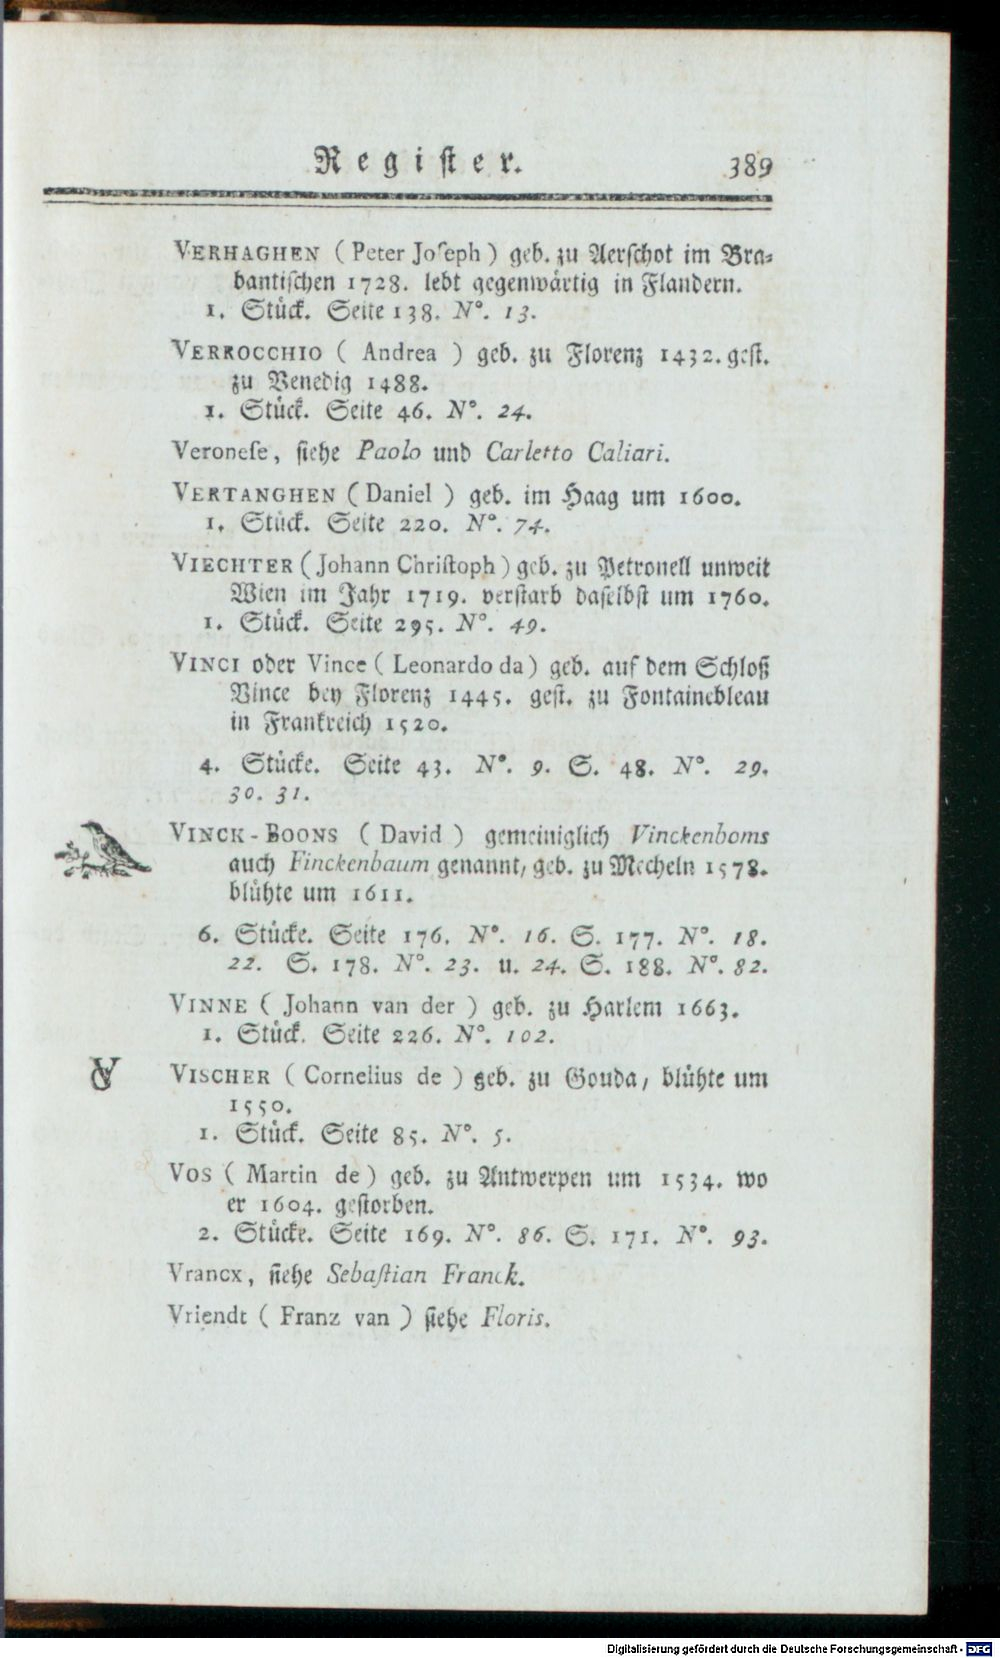 Register. 389
VERHAGHEN ( Peter Joseph ) geb. zu Aerschot im Bra-
bantischen 1728. lebt gegenwärtig in Flandern.
1. Stück. Seite 138. N°. 13.
VERROCCHIO ( Andrea ) geb. zu Florenz 1432. gest.
zu Venedig 1488.
1. Stück. Seite 46. N°. 24.
Veronese, siehe Paolo und Carletto Caliari.
VERTANGHEN ( Daniel ) geb. im Haag um 1600.
1. Stück. Seite 220. N°. 74.
VIECHTER ( Johann Christoph ) geb. zu Petronell unweit
Wien im Jahr 1719. verstarb daselbst um 1760.
1. Stück. Seite 295. N°. 49.
VINCI oder Vince ( Leonardo da ) geb. auf dem Schloß
Vince bey Florenz 1445. gest. zu Fontainebleau
in Frankreich 1520.
4. Stücke. Seite 43. N°. 9. S. 48. N°. 29.
30. 31.
VINCK-BOONS ( David ) gemeiniglich Vinckenboms
auch Finckenbaum genannt, geb. zu Mecheln 1578.
blühte um 1611.
6. Stücke. Seite 176. N°. 16. S. 177. N°. 18.
22. S. 178. N°. 23. u. 24. S. 188. N°. 82.
VINNE ( Johann van der ) geb. zu Harlem 1663.
1. Stück. Seite 226. N°. 102.
VISCHER ( Cornelius de ) geb. zu Gouda, blühte um
1550.
1. Stück. Seite 85. N°. 5.
VOS ( Martin de ) geb. zu Antwerpen um 1534. wo
er 1604. gestorben.
2. Stücke. Seite 169. N°. 86. S. 171. N°. 93.
Vrancx, siehe Sebastian Franck.
Vriendt ( Franz van ) siehe Floris.
Digitalisierung gefördert durch die Deutsche Forschungsgemeinschaft - DFG